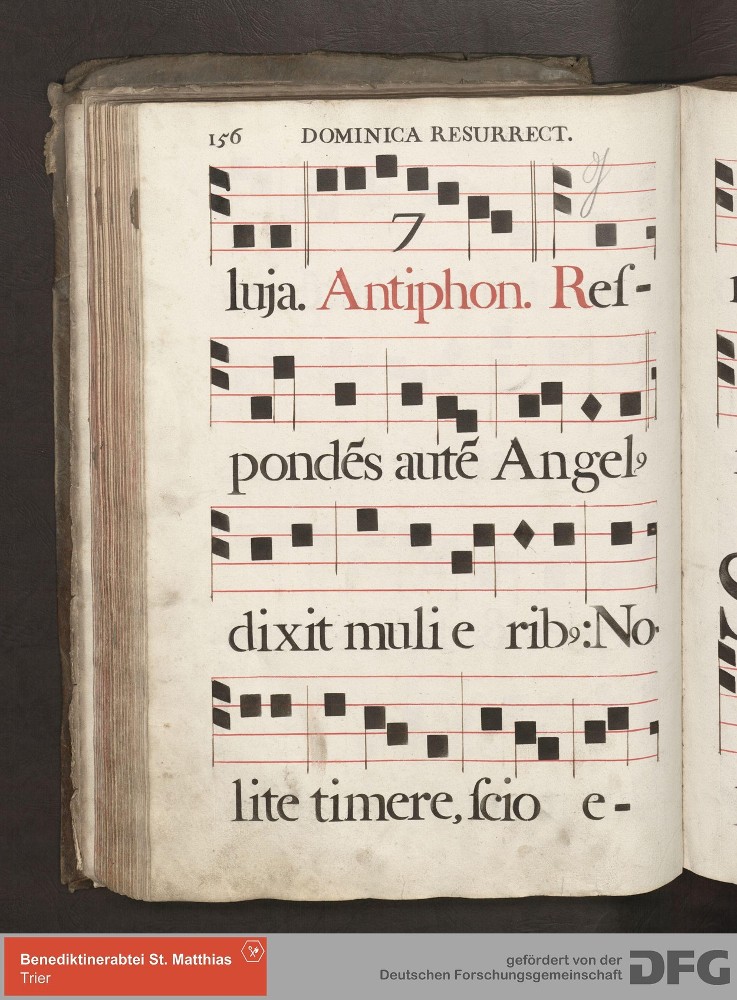 156 DOMINICA RESURRECT.
7
luja. Antiphon. Reſ-
pondẽs autẽ Angelꝰ
dixit muli e ribꝰ: No-
lite timere, ſcio e-
Benediktinerabtei St. Matthias
Trier
gefördert von der
Deutschen Forschungsgemeinschaft
DFG